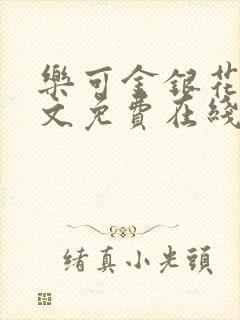 樂可金銀花
文免費在綫
緒真小光頭